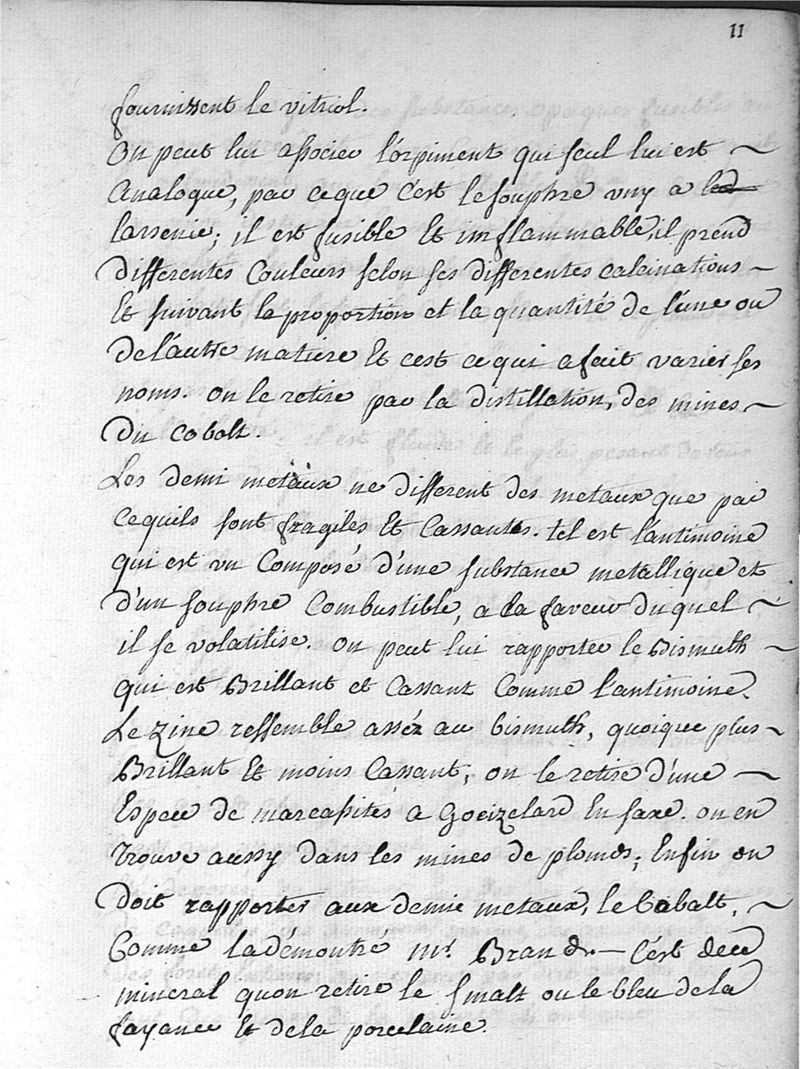 11
fournissent le vitriol.
On peut lui associer l'orpiment qui seul lui est ~
analogue, par ceque c'est le souphre uny a
larsenic; il est fusible et inflammable, il prend
differentes couleurs selon ses differentes calcinations ~
Et suivant la proportion et la quantité de l'une ou
de l'autre matiere Et cest ce qui a fait varier ses
noms. on le retire par la distillation, des mines ~
du cobolt.
Les demi metaux ne different des metaux que par
cequils sont fragiles Et Cassants. tel est l'antimoine
qui est un Composé d'une substance metallique et
d'un souphre Combustible, a la faveur duquel ~
il se volatilise. on peut lui rapporter le Bismuth ~
qui est Brillant et Cassant Comme l'antimoine.
Le Zinc ressemble assés au bismuth, quoique plus ~
Brillant Et moins Cassant; on le retire d'une ~
Espece de marcassites a En saxe. on en
trouve aussy dans les mines de plomb; Enfin on
doit rapporter aux demie metaux, le Cobalt, ~
Comme lademontré Mr. Brandr — C'est de ce
mineral quon retire le smalt ou le bleu de la
fayance Et de la porcelaine.